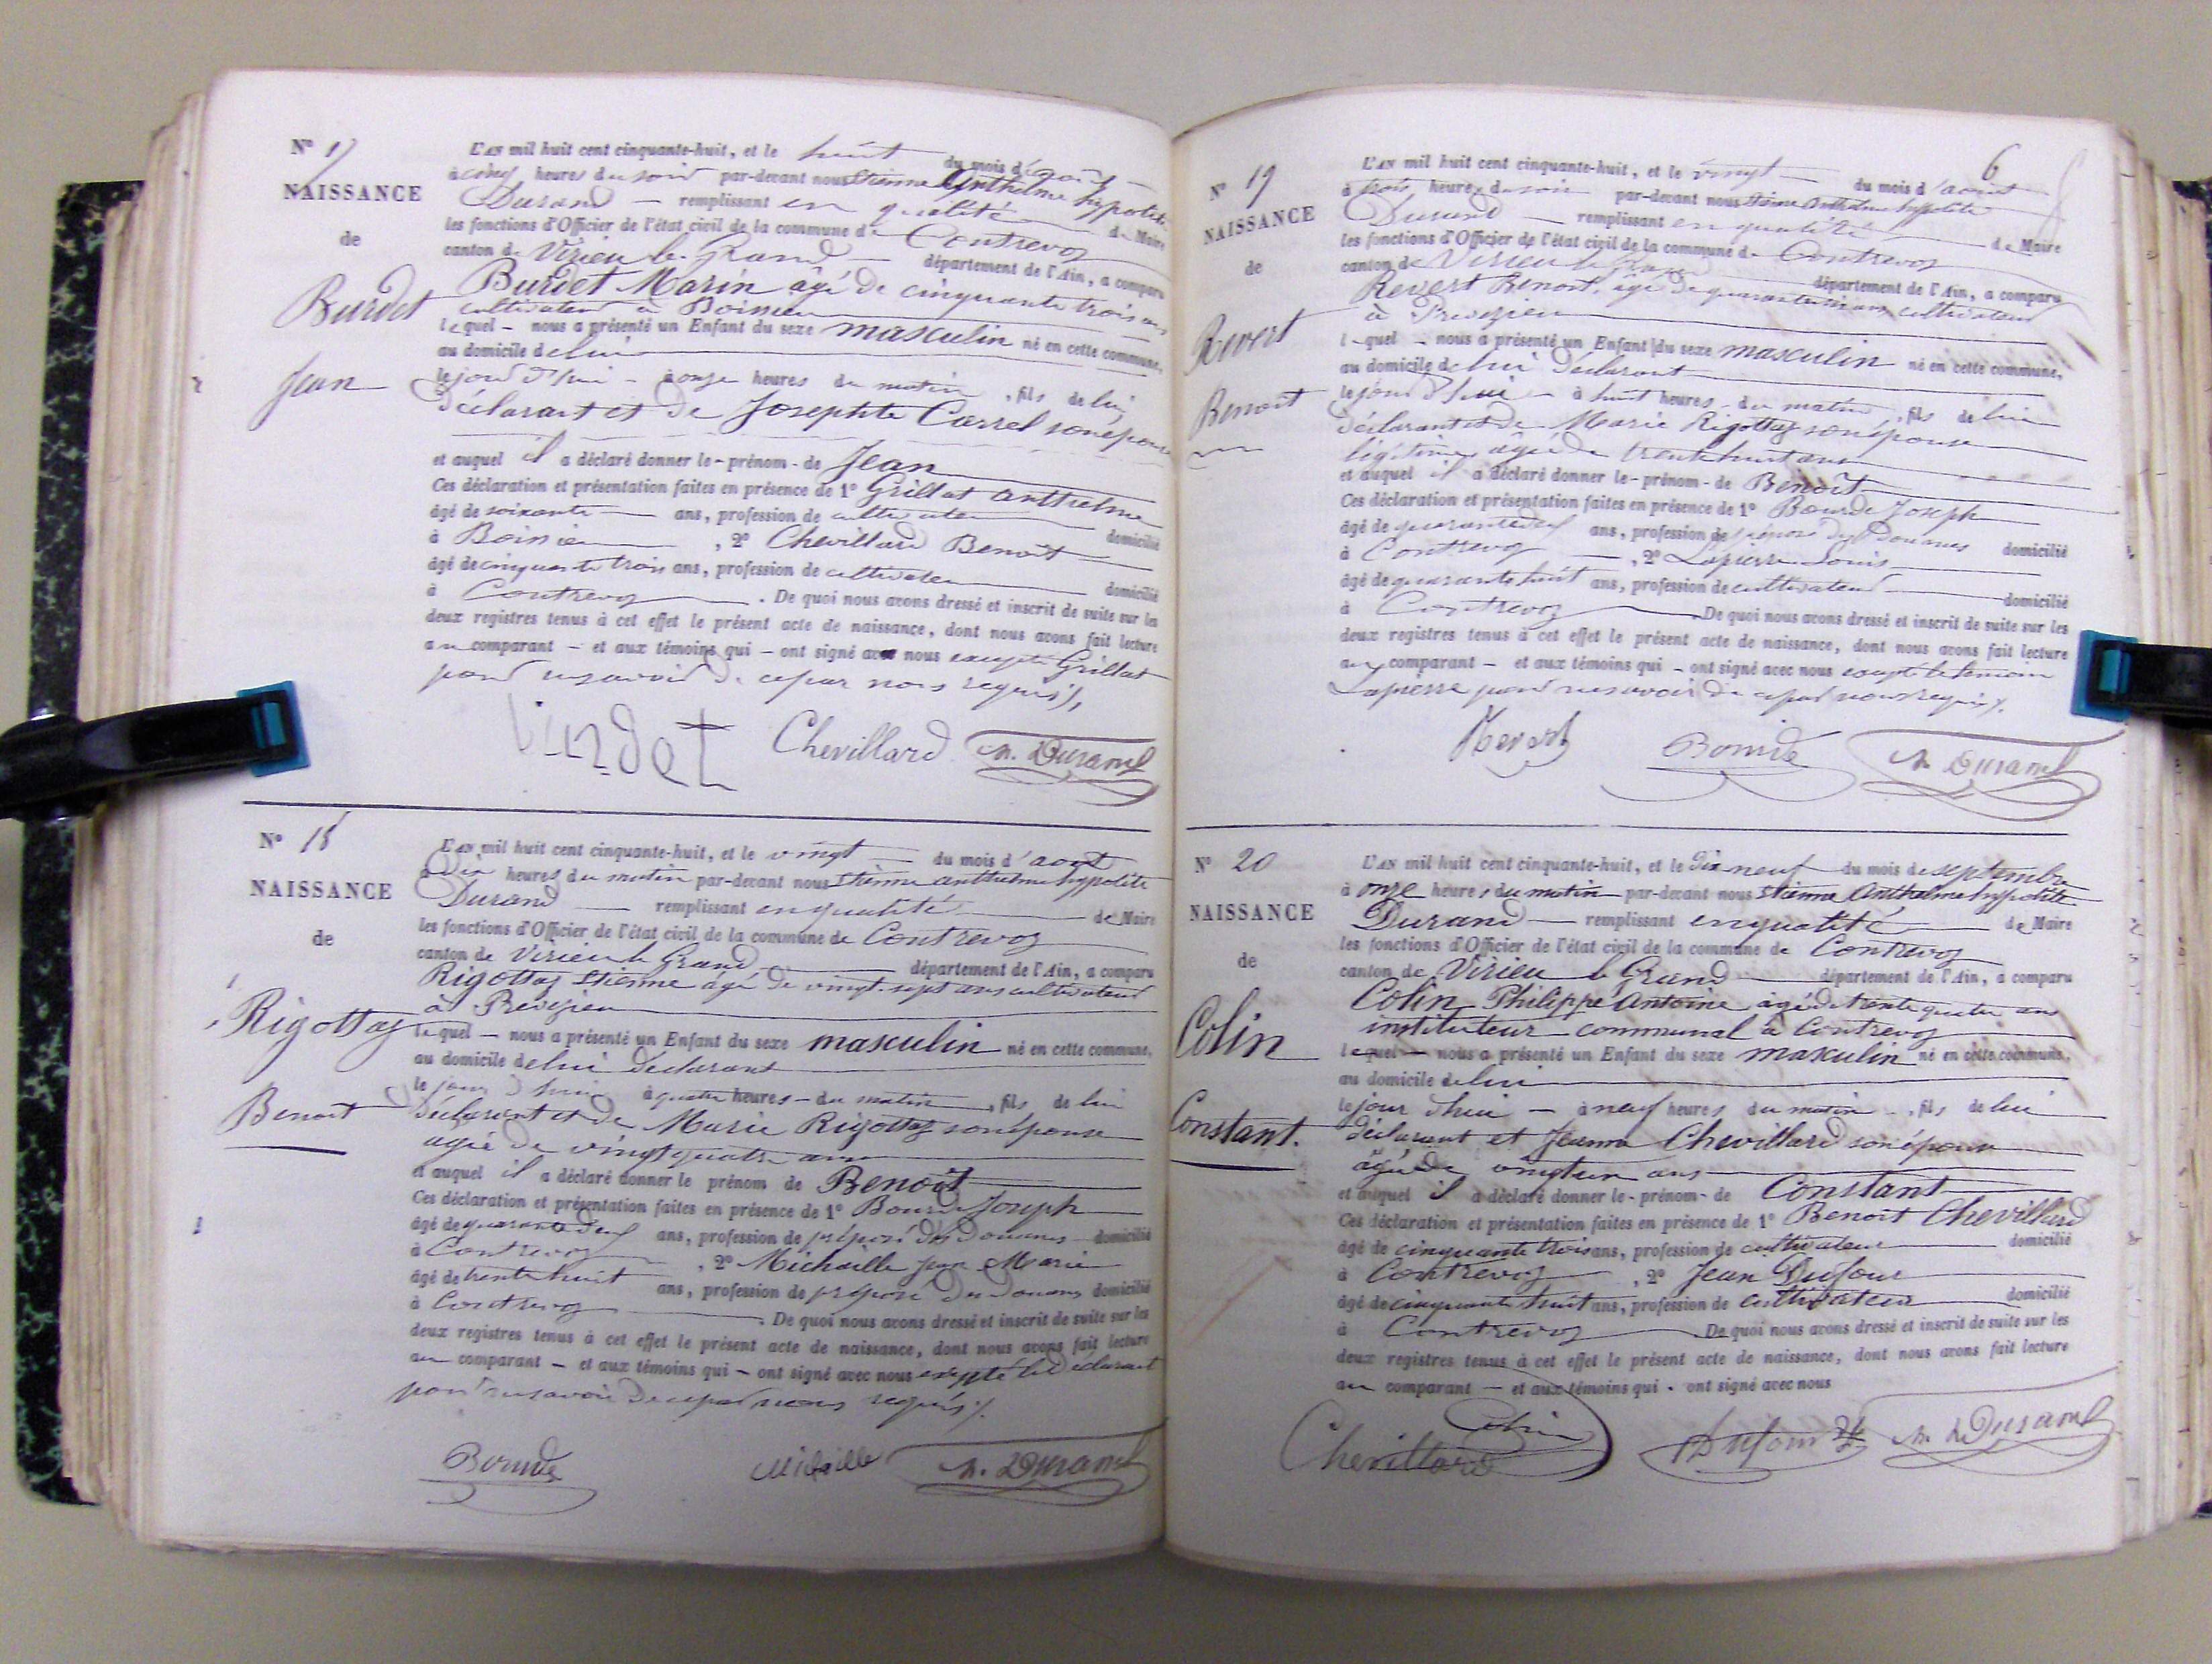 N° 17
NAISSANCE
de
Burdet
Jean
L'AN mil huit cent cinquante-huit, et le huit du mois d'août
à cinq heures du soir par-devant nous Etienne Anthelme hypolite
Durand remplissant en qualité de Maire
les fonctions d'Officier de l'état civil de la commune de Contrevoz
canton de Virieu le Grand département de l'Ain, a comparu
Burdet Marin âgé de cinquante trois ans
cultivateur à Boissieu
lequel nous a présenté un Enfant du sexe masculin né en cette commune,
au domicile de lui
le jour d'hui à onze heures du matin, fils de lui
déclarant et de Josephte Carrel son épouse
et auquel il a déclaré donner le prénom de Jean
Ces déclaration et présentation faites en présence de 1° Grillat anthelme
âgé de soixante ans, profession de cultivateur domicilié
à Boissieu, 2° Chevillard Benoît
âgé de cinquante trois ans, profession de cultivateur domicilié
à Contrevoz. De quoi nous avons dressé et inscrit de suite sur les
deux registres tenus à cet effet le présent acte de naissance, dont nous avons fait lecture
au comparant - et aux témoins qui - ont signé avec nous excepté Grillat
pour ne savoir de ce par nous requis
Burdet Chevillard A. Durand
N° 18
NAISSANCE
de
Rigottaz
Benoit
L'AN mil huit cent cinquante-huit, et le vingt du mois d'août
à dix heures du matin par-devant nous Etienne anthelme hypolite
Durand remplissant en qualité de Maire
les fonctions d'Officier de l'état civil de la commune de Contrevoz
canton de Virieu le Grand département de l'Ain, a comparu
Rigottaz Etienne âgé de vingt-sept ans cultivateur
à Preveyzieu
lequel - nous a présenté un Enfant du sexe masculin né en cette commune,
au domicile de lui déclarant
le jour d'hui à quatre heures - du matin, fils de lui
déclarant et de Marie Rigottaz son épouse
agée de vingt quatre ans
et auquel il a déclaré donner le prénom de Benoît
Ces déclaration et présentation faites en présence de 1° Bourde Joseph
âgé de quarante deux ans, profession de préposé des Douanes domicilié
à Contrevoz, 2° Michaille Jean Marie
âgé de trente huit ans, profession de préposé des Douanes domicilié
à Contrevoz. De quoi nous avons dressé et inscrit de suite sur les
deux registres tenus à cet effet le présent acte de naissance, dont nous avons fait lecture
au comparant - et aux témoins qui - ont signé avec nous excepté le déclarant
pour ne savoir de ce par nous requis
Bourde Michaille A. Durand
6
N° 19
NAISSANCE
de
Revert
Benoit
L'AN mil huit cent cinquante-huit, et le vingt du mois d'aout
à trois heures du soir par-devant nous Etienne Anthelme hypolite
Durand remplissant en qualité de Maire
les fonctions d'Officier de l'état civil de la commune de Contrevoz
canton de Virieu le Grand département de l'Ain, a comparu
Revert Benoit, âgé de quarante ans cultivateur
à Preveyzieu
lequel - nous a présenté un Enfant du sexe masculin né en cette commune,
au domicile de lui déclarant
le jour d'hui - à huit heures - du matin, fils de lui
déclarant et de Marie Rigottaz son épouse
légitime âgée de trente huit ans
et auquel il a déclaré donner le - prénom - de Benoît
Ces déclaration et présentation faites en présence de 1° Bourde Joseph
âgé de quarante deux ans, profession de préposé des Douanes domicilié
à Contrevoz, 2° Lapierre Louis
âgé de quarante huit ans, profession de cultivateur domicilié
à Contrevoz De quoi nous avons dressé et inscrit de suite sur les
deux registres tenus à cet effet le présent acte de naissance, dont nous avons fait lecture
au comparant - et aux témoins qui - ont signé avec nous excepté le temoin
Lapierre pour ne savoir de ce par nous requis
Revert Bourde A. Durand
N° 20
NAISSANCE
de
Colin
Constant.
L'AN mil huit cent cinquante-huit, et le dix neuf du mois de septembre
à onze heures du matin par-devant nous Etienne Anthelme hypolite
Durand remplissant en qualité de Maire
les fonctions d'Officier de l'état civil de la commune de Contrevoz
canton de Virieu le Grand département de l'Ain, a comparu
Colin Philippe Antoine âgé de trente quatre ans
instituteur communal à Contrevoz
lequel - nous a présenté un Enfant du sexe masculin né en cette commune,
au domicile de lui
le jour d'hui - à neuf heures du matin, fils de lui
déclarant et Jeanne Chevillard son épouse
âgée de vingt un ans
et auquel il a déclaré donner le - prénom - de Constant
Ces déclaration et présentation faites en présence de 1° Benoit Chevillard
âgé de cinquante trois ans, profession de cultivateur domicilié
à Contrevoz, 2° Jean Dufour
âgé de cinquante huit ans, profession de cultivateur domicilié
à Contrevoz De quoi nous avons dressé et inscrit de suite sur les
deux registres tenus à cet effet le présent acte de naissance, dont nous avons fait lecture
au comparant - et aux témoins qui - ont signé avec nous
Colin
Chevillard Dufour A. Durand